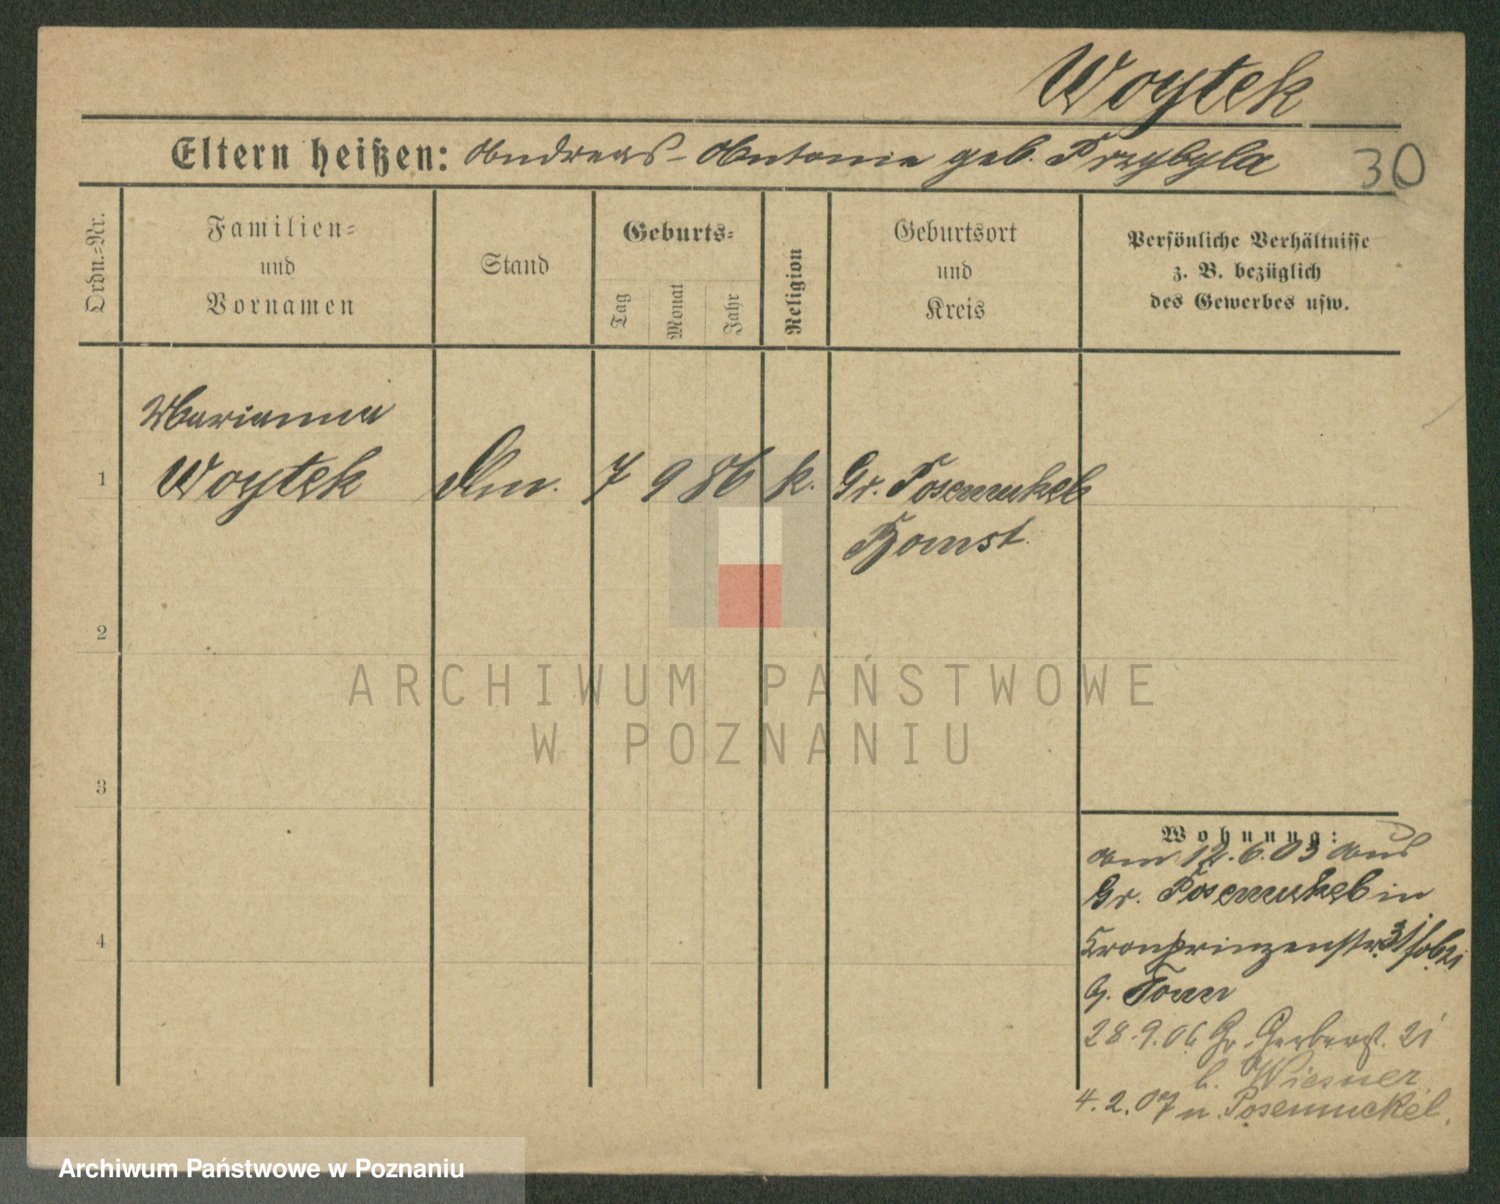 Woytek
Eltern heißen: Andreas - Antonie geb. Przybyla
30
Ordn.-Nr.
Familien-
und
Vornamen
Stand
Geburts-
Tag
Monat
Jahr
Religion
Geburtsort
und
Kreis
Persönliche Verhältnisse
z. B. bezüglich
des Gewerbes usw.
Marianna
1 Woytek 7 9 86 k. Gr. Posemukel
Bomst.
2
3
4
Wohnung:
am 12.6.03 aus
Gr. Posemukel in
Kronprinzenstr. 31
b.
28.9.06 Gr. Gerberst. 21
b. Wiesner
4.2.07 n. Posemuckel.
ARCHIWUM PAŃSTWOWE
W POZNANIU
Archiwum Państwowe w Poznaniu